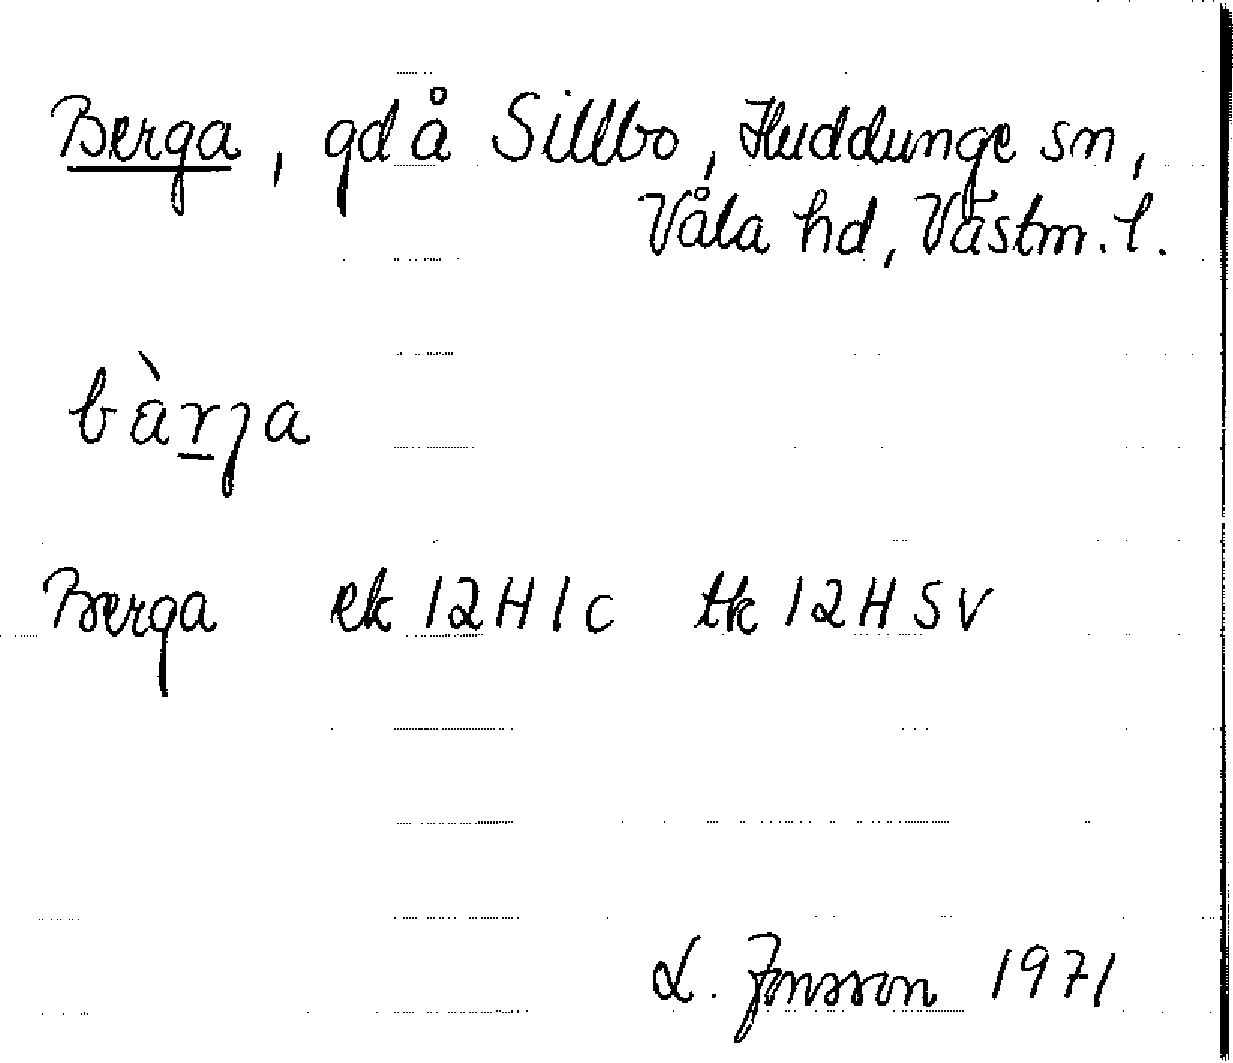 Berga, gd å Sillbo, Huddunge sn,
Våla hd, Västm. l.
bàrja
Berga ek 12H1c tk 12HSV
L. Jonsson 1971